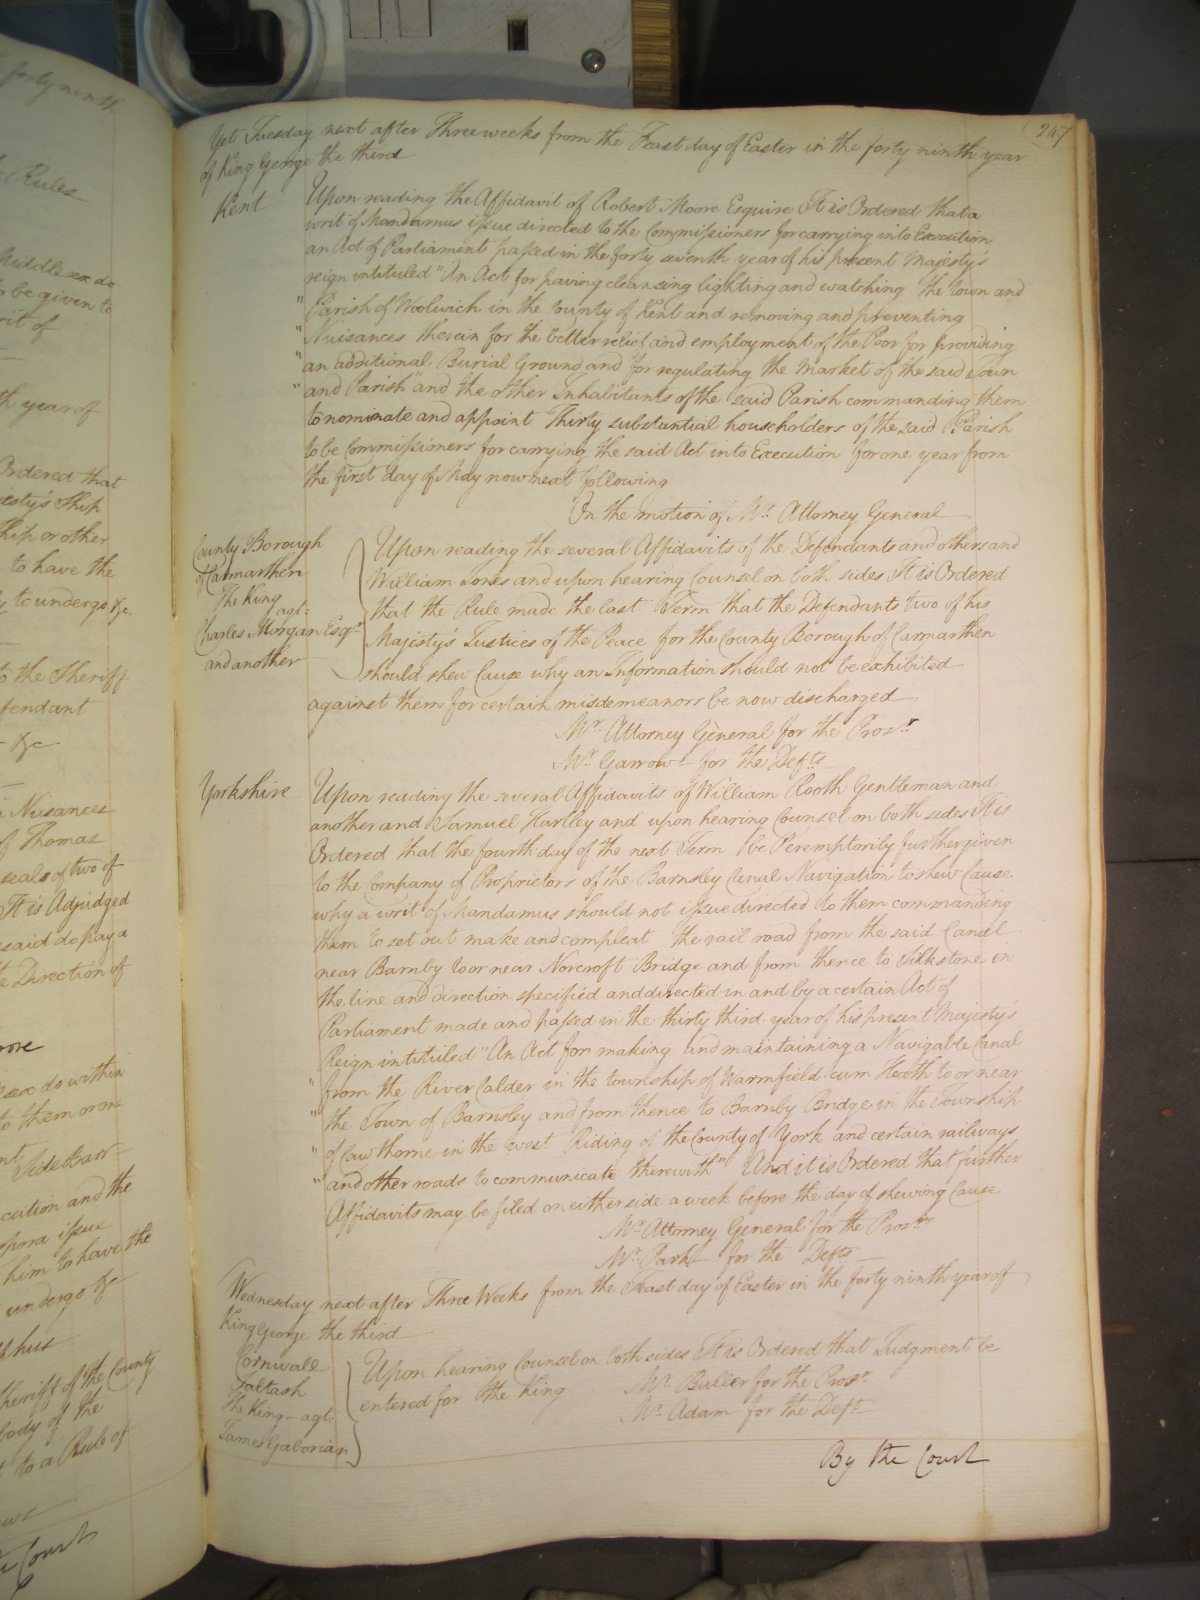 247
Yet Tuesday next after Three weeks from the Feast day of Easter in the forty ninth year
of King George the third
Kent
Upon reading the Affidavit of Robert Moore Esquire It is Ordered that a
writ of Mandamus issue directed to the Commissioners for carrying into Execution
an Act of Parliament passed in the forty seventh year of his present Majesty's
reign intituled "An Act for paving cleansing lighting and watching the town and
" Parish of Woolwich in the County of Kent and removing and preventing
" Nuisances therein for the better relief and employment of the Poor for providing
" an additional Burial Ground and for regulating the Market of the said Town
" and Parish" and the other Inhabitants of the said Parish commanding them
to nominate and appoint Thirty substantial householders of the said Parish
to be Commissioners for carrying the said Act into Execution for one year from
the first day of May now next following
On the motion of Mr. Attorney General
County Borough
of Carmarthen
The King
agt:
Charles Morgan Esqr.
and another
Upon reading the several Affidavits of the Defendants and others and
William Jones and upon hearing Counsel on both sides It is Ordered
that the Rule made the last Term that the Defendants two of his
Majesty's Justices of the Peace for the County Borough of Carmarthen
should shew Cause why an Information should not be exhibited
against them for certain misdemeanors be now discharged
Mr. Attorney General for the Prosr.
Mr. Garrow for the Defts
Yorkshire
Upon reading the several Affidavits of William Rooth Gentleman and
another and Samuel Hartley and upon hearing Counsel on both sides It is
Ordered that the fourth day of the next Term be Peremptorily further given
to the Company of Proprietors of the Barnsley Canal Navigation to shew Cause
why a writ of Mandamus should not issue directed to them commanding
them to set out make and compleat the rail road from the said Canal
near Barnby to or near Norcroft Bridge and from thence to Silkstone in
the line and direction specified and directed in and by a certain Act of
Parliament made and passed in the thirty third year of his present Majesty's
Reign intituled "An Act for making and maintaining a Navigable Canal
" from the River Calder in the township of Warmfield cum Heath to or near
" the Town of Barnsley and from thence to Barnby Bridge in the Township
" of Cawthorne in the West Riding of the County of York and certain railways
" and other roads to communicate therewith" And it is Ordered that further
Affidavits may be filed on either side a week before the day of shewing Cause
Mr. Attorney General for the Prosrs
Mr. Park for the Defts
Wednesday next after Three Weeks from the Feast day of Easter in the forty ninth year of
King George the third
Cornwall
Saltash
The King agt:
James Gaborian
Upon hearing Counsel on both sides It is Ordered that Judgment be
entered for the King
Mr. Buller for the Prosr.
Mr. Adam for the Deft
By the Court